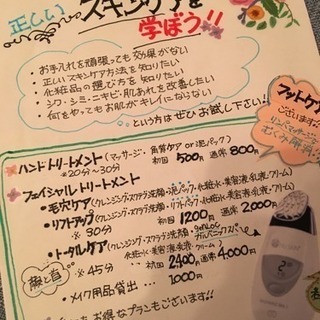 正しい スキンケアを
学ぼう!!
・お手入れを頑張っても効果がない
・正しいスキンケア方法を知りたい
・化粧品の選び方を知りたい
・シワ・シミ・ニキビ・肌あれを改善したい
・何をやってもお肌がキレイにならない
という方はぜひお試し下さい!
フットケア
ございます!!
リンパマッサージ
むくみ解消!
♦ハンドトリートメント(マッサージ・角質ケア or 泥パック)
※20分〜30分 初回 500円 通常 800円
♦フェイシャルトリートメント
・毛穴ケア(クレンジング・スクラブ洗顔・泥パック・化粧水・美容液・乳液・クリーム)
・リフトアップ(クレンジング・スクラブ洗顔・リフトパック・化粧水・美容液・乳液・クリーム)
※30分 初回 1200円 通常 2,000円
・トータルケア(クレンジング・スクラブ洗顔・ガルバニックスパ
化粧水・美容液・乳液・クリーム)
顔と首 ※45分 初回 2,400円 通常 4,000円
・メイク用品貸出… 1,000円
お得なプランもございます!!